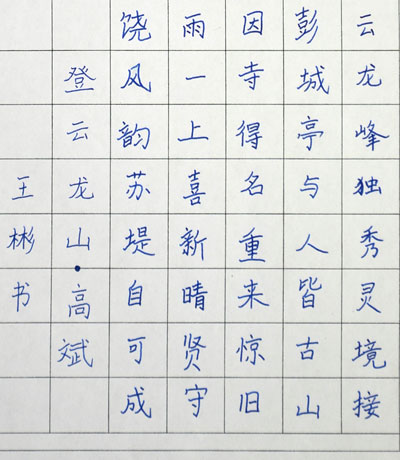 云龙峰独秀灵境接
彭城亭与人皆古山
因寺得名重来惊旧
雨一上喜新晴贤守
饶风韵苏堤自可成
登云龙山·高斌
王彬书